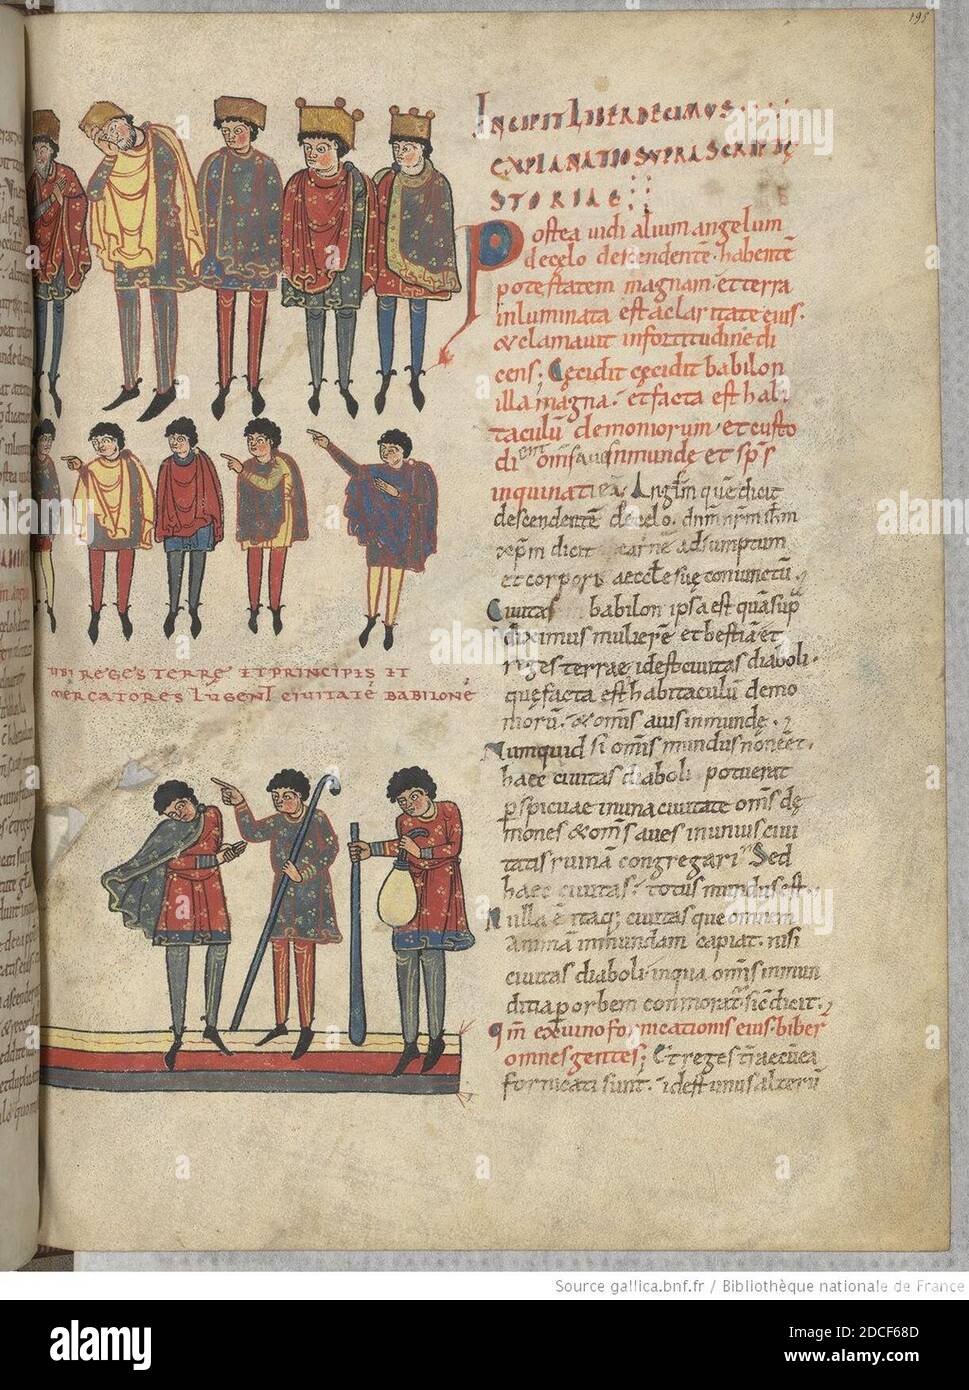 195
INCIPIT LIBER DECIMUS
EXPLANATIO SUPRA SCRIPTĘ
STORIAE
Postea uidi alium angelum
de celo descendentē habentē
potestatem magnam et terra
inluminata est a claritate eius.
& clamauit in fortitudine di
cens; Cęcidit cęcidit babilon
illa magna. et facta est habi
taculū demoniorum et custo
inquinati Angłm quē dicit
descendentē de celo. dnm nrm
xpm dicit carnē adsumptum
et corpori aecclesię coniunctū
Ciuitas babilon ipsa est quā sup
diximus mulierē et bestiā et
reges terrae id est ciuitas diaboli.
quę facta est habitaculū demo
moru. & omīs auis inmundę
Numquid si omīs mundus non eēt
haec ciuitas diaboli. potuerat
pspicuae in una ciuitate omīs dę
mones & omīs aues in unius ciui
tatis ruinā congregari Sed
haec ciuitas totus mundus est.
Nulla ē itaq; ciuitas que omnem
animā inmundam capiat. nisi
ciuitas diaboli in qua omīs inmun
ditia p orbem commorat sic dicit
qm ex uino fornicationis eius biber
omnes gentes; Et reges tr̄ae cū ea
fornicati sunt. id est unus alterū
UBI REGES TERRĘ ET PRINCIPIS ET
MERCATORES LUGENT CIUITATĒ BABILONĒ
Source gallica.bnf.fr / Bibliothèque nationale de France
alamy
Image ID: 2DCF68D
www.alamy.com